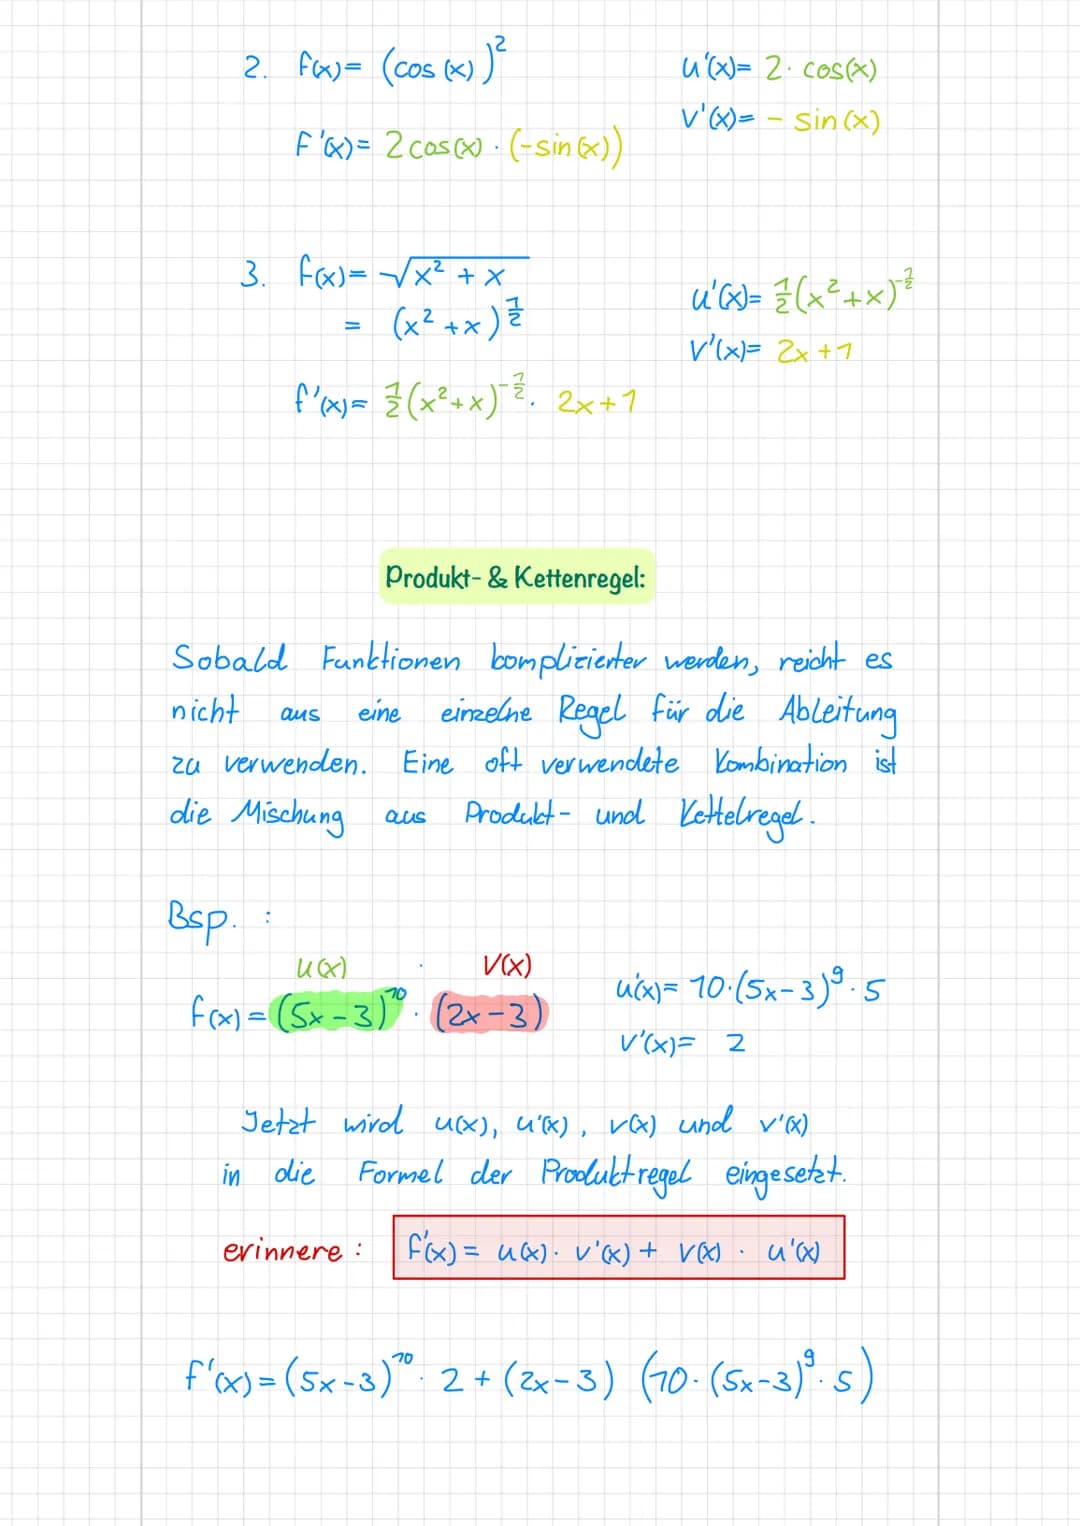 2. f(x)= (cos(x))²
u'(x)= 2·cos(x)
v'(x)= - sin(x)
F'(x)= 2cos(x)·(-sin(x))
3. f(x)= √x² + x
= (x² + x)^½
u'(x)= ½(x²+x)^-½
v'(x)= 2x+1
f'(x)= ½(x²+x)^-½ · 2x+1
Produkt- & Kettenregel:
Sobald Funktionen komplizierter werden, reicht es
nicht aus eine einzelne Regel für die Ableitung
zu verwenden. Eine oft verwendete Kombination ist
die Mischung aus Produkt- und Kettelregel.
Bsp. :
u(x) · v(x)
f(x) = (5x-3)¹⁰ · (2x-3)
u'(x)= 10·(5x-3)⁹·5
v'(x)= 2
Jetzt wird u(x), u'(x), v(x) und v'(x)
in die Formel der Produktregel eingesetzt.
erinnere : f'(x) = u(x)· v'(x) + v(x) · u'(x)
f'(x) = (5x-3)¹⁰ · 2 + (2x-3) (10·(5x-3)⁹·5)